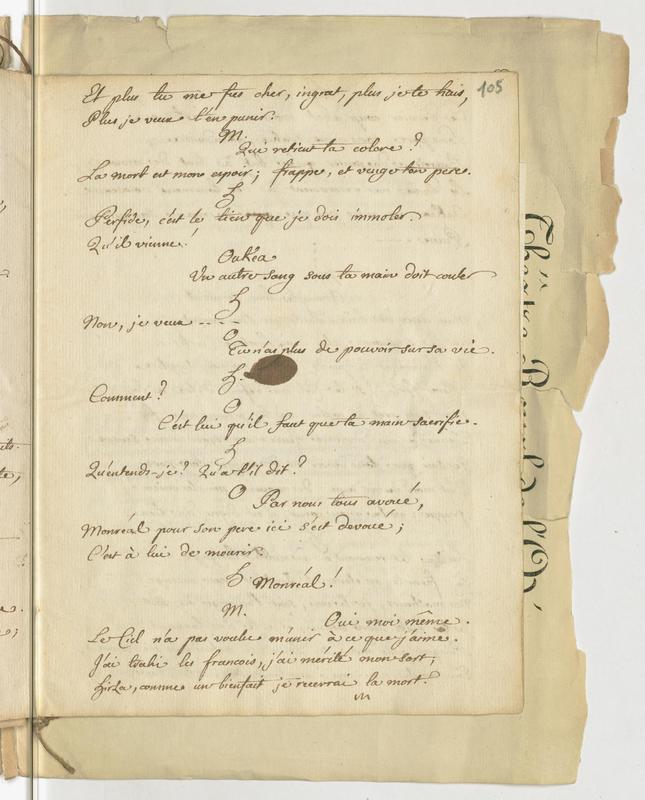 105
Et plus tu me fus cher, ingrat, plus je te hais,
Plus je veux t'en punir.
M.
Qui retient ta colere ?
La mort est mon espoir ; frappe, et venge ton pere.
h
Perfide, c'est le tien que je dois immoler.
Qu'il vienne !
Oukéa
Un autre sang sous ta main doit couler
h
Non, je veux ----
O
Tu n'as plus de pouvoir sur sa vie.
h.
Comment ?
O
C'est lui qu'il faut que ta main sacrifie.
h
Qu'entends-je ? Qu'a t-il dit ?
O Par nous tous avoué,
Monréal pour son pere ici s'est devoué ;
C'est à lui de mourir.
h Monréal !
M.
Oui moi même.
Le Ciel n'a pas voulu m'unir à ce que j'aime.
J'ai trahi les francois, j'ai mérité mon sort ;
hirza, comme un bienfait je recevrai la mort.
Théatre